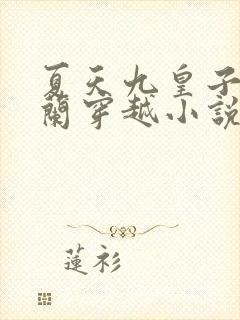 夏天九皇子
蘭穿越小說
蓮衫